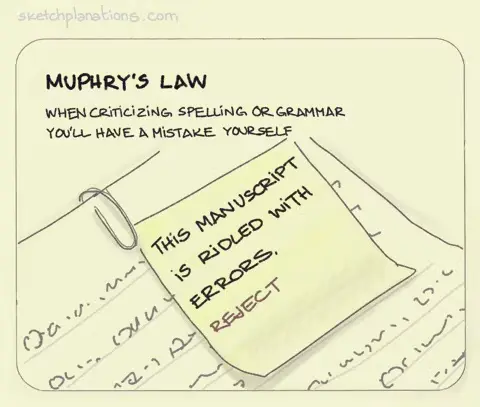 sketchplanations.com
MUPHRY'S LAW
WHEN CRITICIZING SPELLING OR GRAMMAR
YOU'LL HAVE A MISTAKE YOURSELF
THIS MANUSCRIPT
IS RIDLED WITH
ERRORS.
REJECT